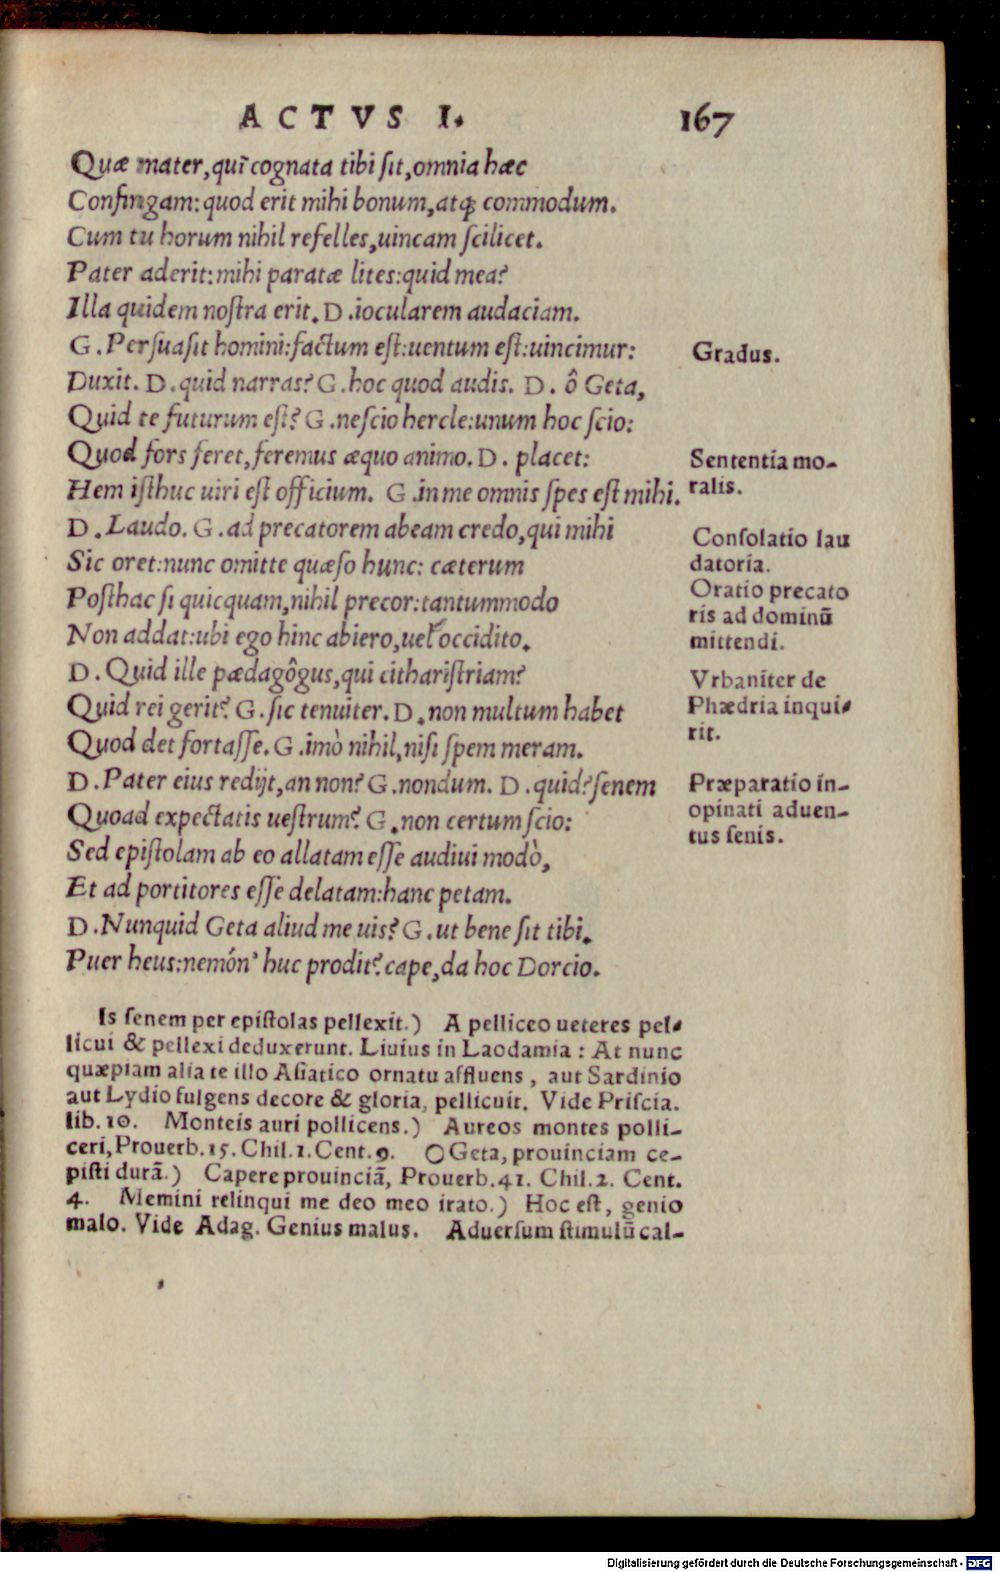 ACTVS I.
167
Quæ mater, qui cognata tibi ſit, omnia hæc
Confingam: quod erit mihi bonum, atq; commodum.
Cum tu horum nihil refelles, uincam ſcilicet.
Pater aderit: mihi paratæ lites: quid mea?
Illa quidem noſtra erit. D. iocularem audaciam.
G. Perſuaſit homini: factum eſt: uentum eſt: uincimur:
Duxit. D. quid narras? G. hoc quod audis. D. ô Geta,
Quid te futurum eſt? G. neſcio hercle: unum hoc ſcio:
Quod fors feret, feremus æquo animo. D. placet:
Hem iſthuc uiri eſt officium. G. in me omnis ſpes eſt mihi.
D. Laudo. G. ad precatorem abeam credo, qui mihi
Sic oret: nunc omitte quæſo hunc: cæterum
Poſthac ſi quicquam, nihil precor: tantummodo
Non addat: ubi ego hinc abiero, uel occidito.
D. Quid ille pædagôgus, qui cithariſtriam?
Quid rei gerit? G. ſic tenuiter. D. non multum habet
Quod det fortaſſe. G. imò nihil, niſi ſpem meram.
D. Pater eius redijt, an non? G. nondum. D. quid? ſenem
Quoad expectatis ueſtrum? G. non certum ſcio:
Sed epiſtolam ab eo allatam eſſe audiui modò,
Et ad portitores eſſe delatam: hanc petam.
D. Nunquid Geta aliud me uis? G. ut bene ſit tibi.
Puer heus: nemón' huc prodit? cape, da hoc Dorcio.
Gradus.
Sententia mo-
ralis.
Conſolatio lau
datoria.
Oratio precato
ris ad dominū
mittendi.
Vrbaniter de
Phædria inqui-
rit.
Præparatio in-
opinati aduen-
tus ſenis.
Is ſenem per epiſtolas pellexit.) A pelliceo ueteres pel-
licui & pellexi deduxerunt. Liuius in Laodamia: At nunc
quæpiam alia te illo Aſiatico ornatu affluens, aut Sardinio
aut Lydio fulgens decore & gloria, pellicuit. Vide Priſcia.
lib. 10. Monteis auri pollicens.) Aureos montes polli-
ceri, Prouerb. 15. Chil. 1. Cent. 9. O Geta, prouinciam ce-
piſti durā.) Capere prouinciā, Prouerb. 41. Chil. 2. Cent.
4. Memini relinqui me deo meo irato.) Hoc eſt, genio
malo. Vide Adag. Genius malus. Aduerſum ſtimulū cal-
Digitalisierung gefördert durch die Deutsche Forschungsgemeinschaft - DFG